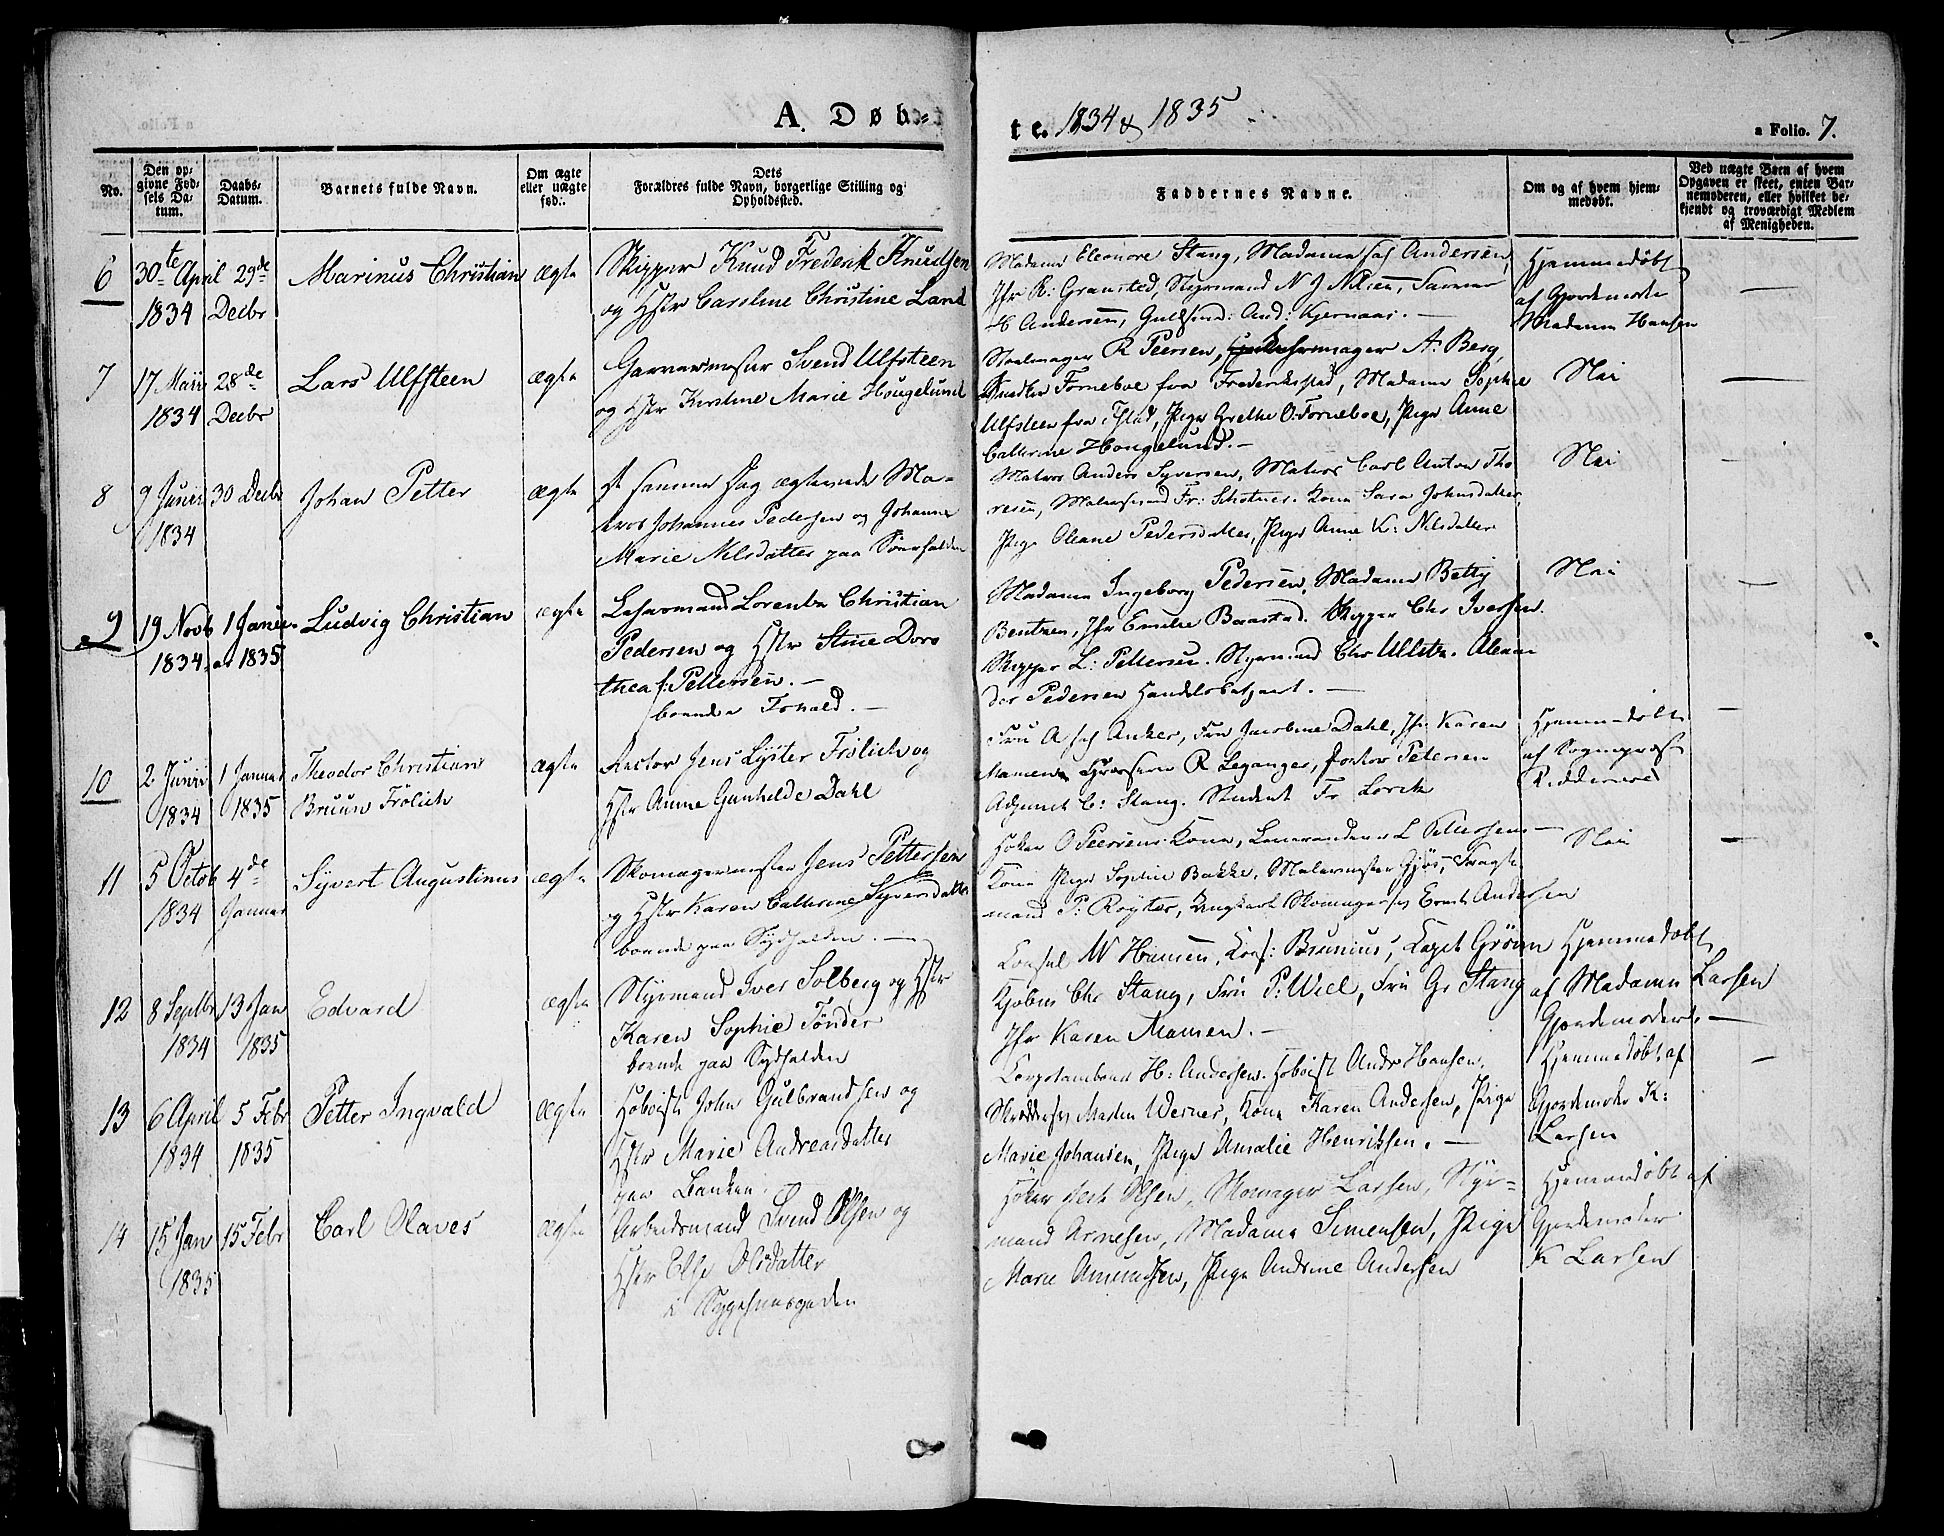 A. Døb-
te. 1834 & 1835
a Folio. 7.
No.
Den op-
givne Fød-
sels Da-
tum.
Daabs-
Datum.
Barnets fulde Navn.
Om ægte
eller uægte
fød.
Dets
Forældres fulde Navn, borgerlige Stilling og
Opholdssted.
Faddernes Navne.
Om og af hvem hjem-
medøbt.
Ved uægte Børn af hvem
Opgaven er skeet, enten Bar-
nemoderen, eller hvilket be-
kjendt og troværdigt Medlem
af Menigheden.
6
30te April
1834
29de
Decbr
Marinus Christian
ægte
Skipper Knud Frederik Knudsen
og Hstr Caroline Christine Land
Madame Eleonore Stang, Madame Andersen,
Jfr R: Gransted, Styrmand N J Nilsen,
H Andersen, Guldsmd: And:
Hjemmedøbt
af Gjordemoder
Madame Hansen
7
17 Maii
1834
28de
Decbr
Lars Ulfsteen
ægte
Garvermester Svend Ulfsteen
og Hstr Kirstine Marie Hougelund
R Peersen, A. Berg,
Forneboe fra Frederiksstad, Madame Sophie
Ulfsteen fra Tstad, Pige Grethe O. Forneboe, Pige Anne
Cathrine Hougelund.
Nei
8
9 Junii
1834
30 Decbr
Johan Petter
ægte
samme Dag ægteviede Ma-
tros Johannes Pedersen og Johanne
Marie Nilsdatter paa Sønnfolden
Matros Anders Syversen, Matros Carl Anton Tho
resen, Malersvend Fr: Kone Sara Johnsdatter,
Pige Oleane Pedersdatter, Pige Anne K: Nilsdatter
Nei
9
19 Novb
1834
1 Januar
1835
Ludvig Christian
ægte
Lorentz Christian
Pedersen og Hstr Stine Doro
thea f: Pettersen.
boende
Madame Ingeborg Pedersen, Madame Betty
Bentzen, Jfr Emilie Baastad. Skipper Chr Iversen.
Skipper L: Pettersen. Styrmand Chr Ulstn. Alexan
der Pedersen Handelsbetjent.
Nei
10
2 Junii
1834
1 Januar
1835
Theodor Christian
Bruun Frölich
ægte
Rector Jens Lyster Frölich og
Hstr Anne Gunhilde Dahl
Fru A Anker, Fru Jacobine Dahl, Jfr Karen
Mamen R Leganger, Doctor Petersen
Adjunct C: Stang. Student Fr Lorck
Hjemmedøbt
af Sogneprest
Riddervold
11
5 Octob
1834
4de
Januar
Syvert Augustinus
ægte
Skomagermester Jens Pettersen
og Hstr Karen Cathrine Syversdatter
boende paa Sydhalden.
Høker O Peersens Kone, L Pettersens
Kone Pige Sophie Bakke, Malermester Gjøs,
mand P: Röyter, Ungkarl Skomager Ernst Andersen
Nei
12
8 Septbr
1834
13 Jan
1835
Edvard
ægte
Styrmand Iver Solberg og Hstr
Karen Sophie Tönder
boende paa Sydhalden
Consul W Hansen, Cons: Brunius, Capt Grönn
Kjøbm Chr Stang, Fru P: Wiel, Fru Gr Stang
Jfr Karen Mamen.
Hjemmedøbt
af Madame Larsen
Gjordemoder.
13
6 April
1834
5 Febr
1835
Petter Ingvald
ægte
Hoboist John Gulbrandsen og
Hstr Marie Andreasdatter
paa Banken.
Corpstambour H: Andersen. Hoboist Andr Hansen,
Morten Werner, Kone Karen Andersen, Pige
Marie Johansen, Pige Amalie Henriksen.
Hjemmedøbt af
Gjordemoder K:
Larsen
14
15 Jan
1835
15 Febr
Carl Olaves
ægte
Arbeidsmand Svend Olsen og
Hstr Else Olsdatter
i
Høker Olsen, Skomager Larsen, Styr-
mand Arnesen, Madame Simensen, Pige
Marie Amundsen, Pige Andrine Andersen
Hjemmedøbt af
Gjordemoder
K Larsen